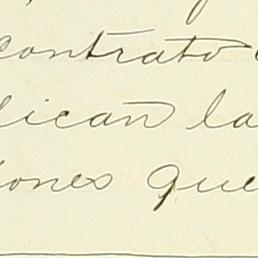 contrato
lican la
iones que